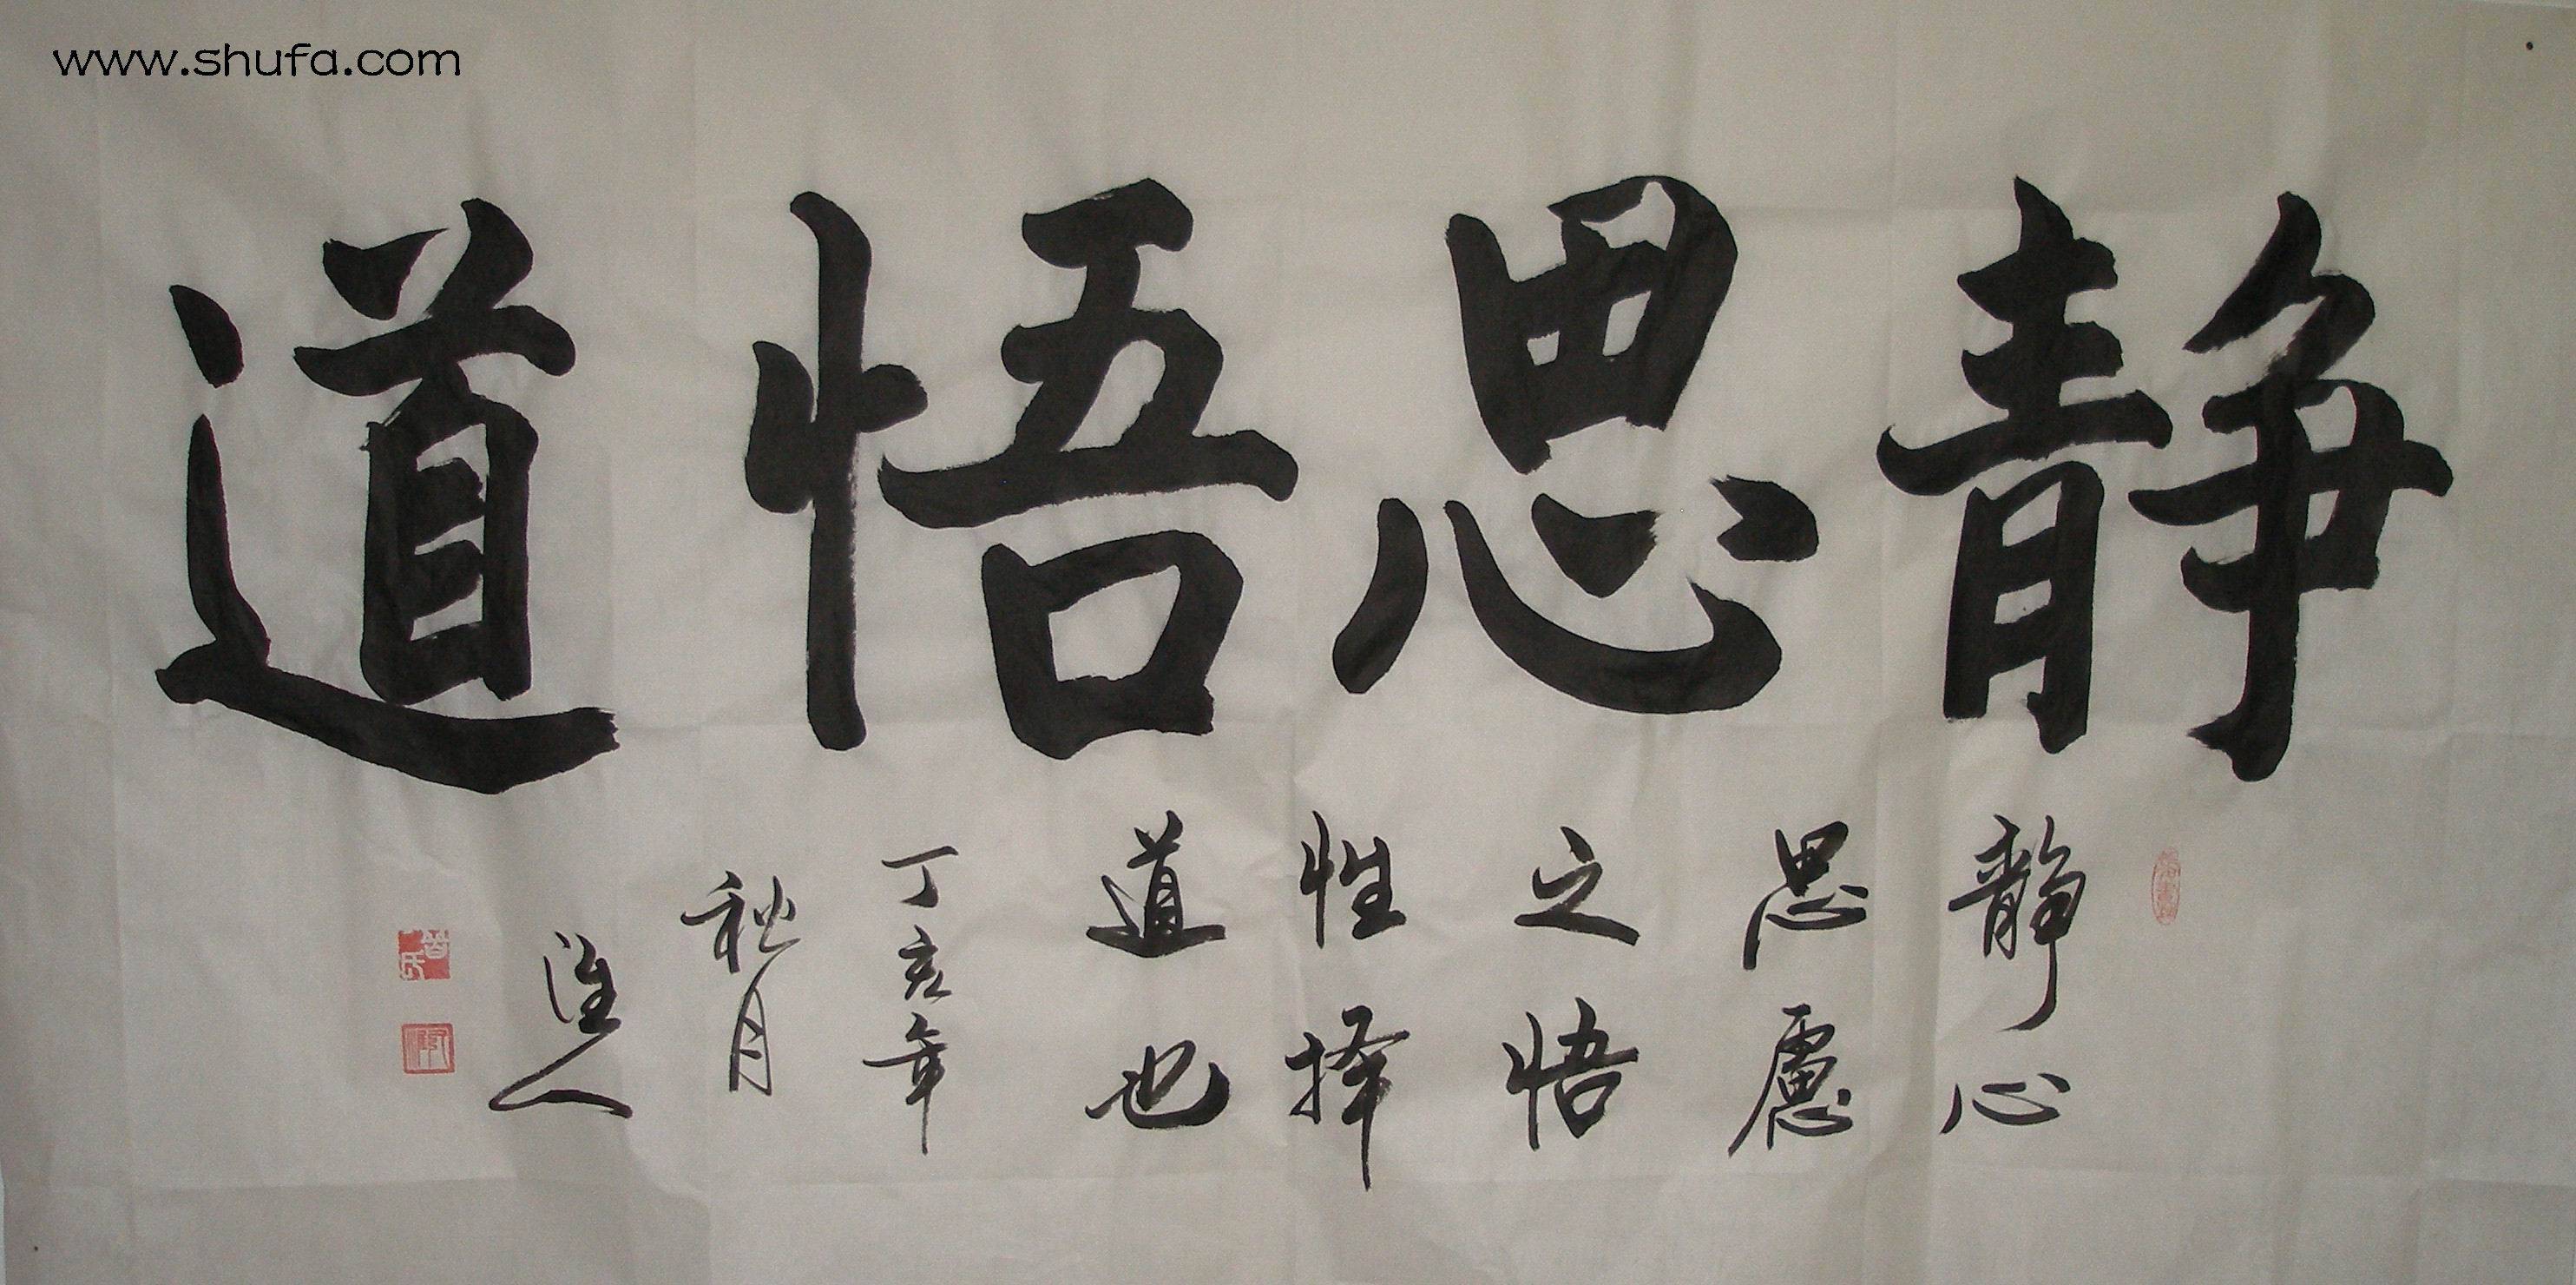 www.shufa.com
靜思悟道
靜心
思慮
之悟
性择
道也
丁亥年
秋月